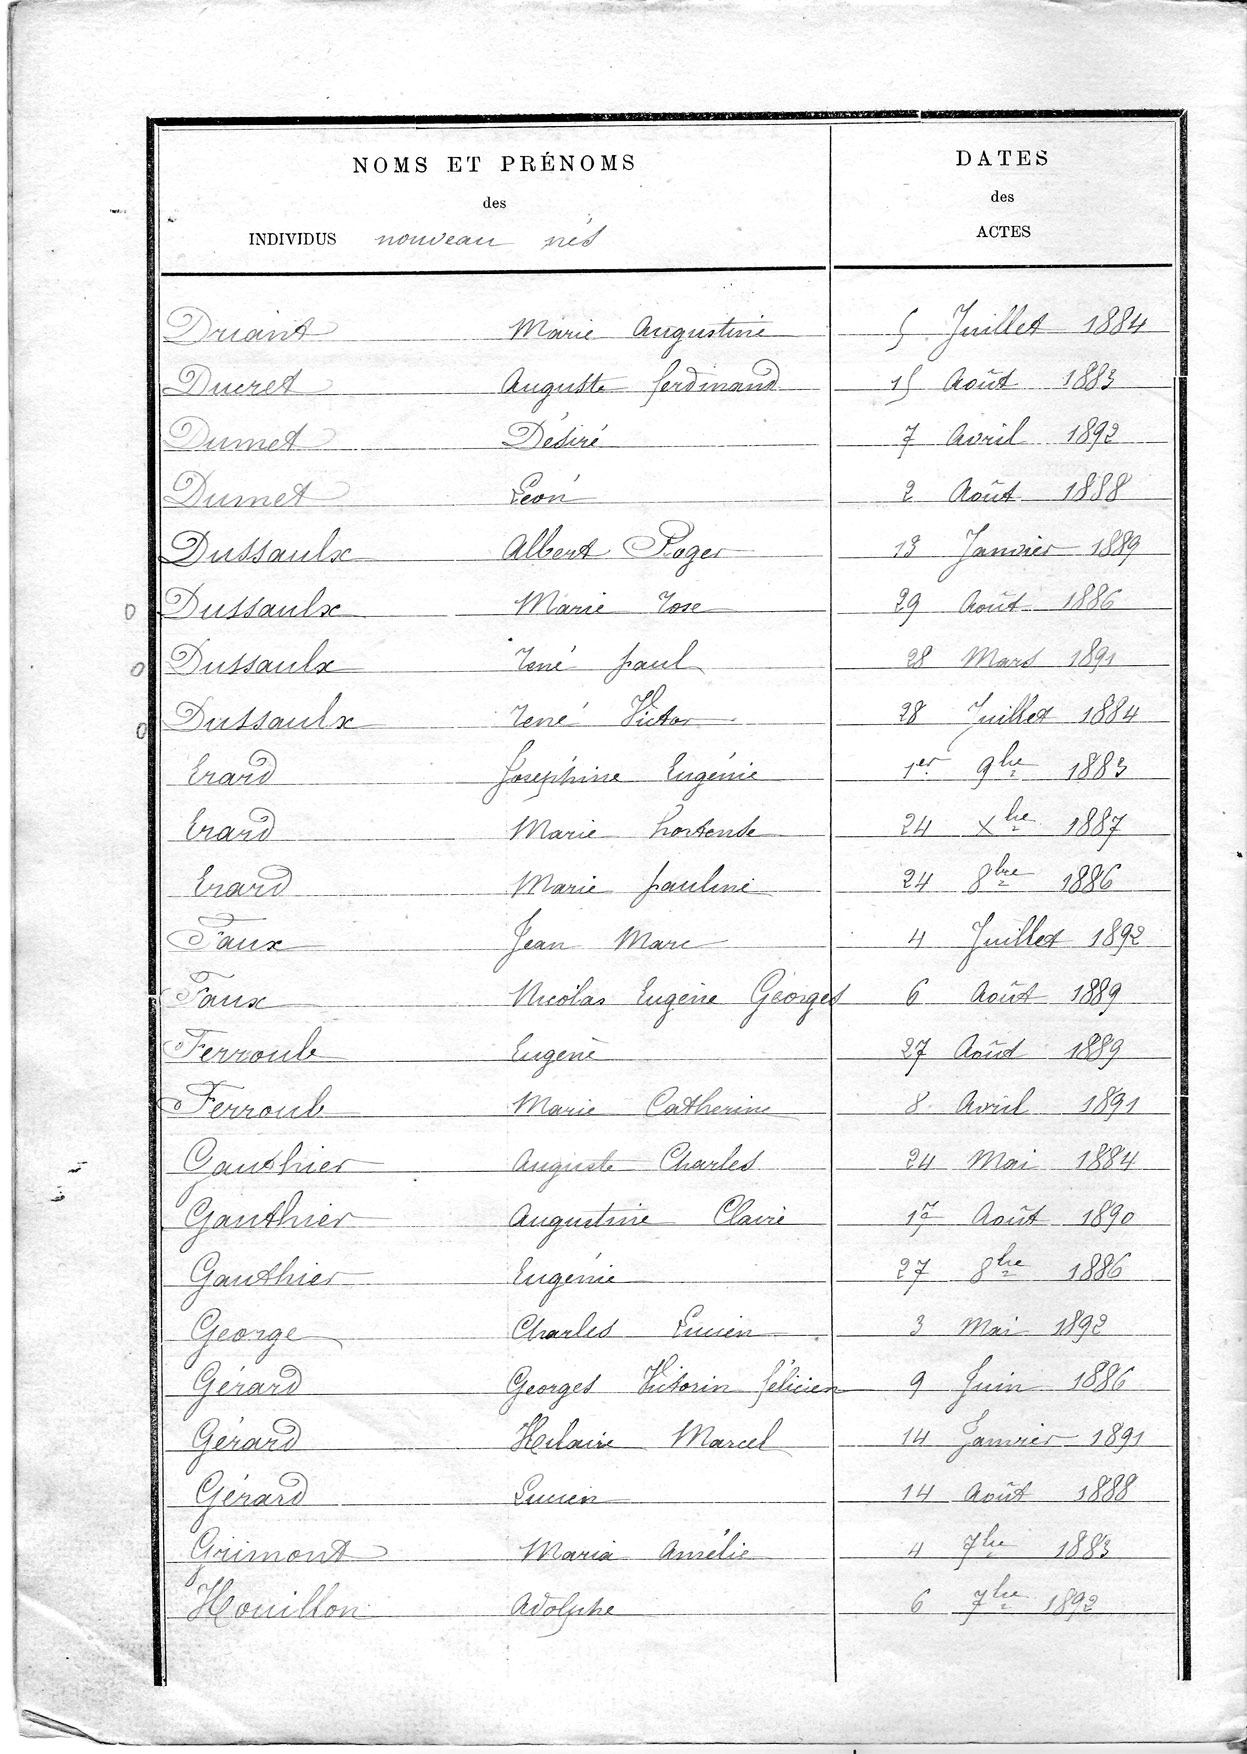 NOMS ET PRÉNOMS
des
INDIVIDUS nouveau nés
DATES
des
ACTES
Driant Marie Augustine 5 Juillet 1884
Ducret Auguste ferdinand 15 Août 1883
Dumet Désiré 7 Avril 1892
Dumet Léon 2 Août 1888
Dussaulx Albert Roger 13 Janvier 1889
0 Dussaulx Marie rose 29 Août 1886
0 Dussaulx rené paul 28 Mars 1891
0 Dussaulx rené Victor 28 Juillet 1884
Erard Joséphine Eugénie 1er 9bre 1883
Erard Marie hortense 24 Xbre 1887
Erard Marie pauline 24 8bre 1886
Faux Jean Marc 4 Juillet 1892
Faux Nicolas Eugène Georges 6 Août 1889
Ferroule Eugène 27 Août 1889
Ferroule Marie Catherine 8 Avril 1891
Gauthier Auguste Charles 24 Mai 1884
Gauthier Augustine Claire 17 Août 1890
Gauthier Eugénie 27 8bre 1886
George Charles Lucien 3 Mai 1892
Gérard Georges Victorin félicien 9 Juin 1886
Gérard Hilaire Marcel 14 Janvier 1891
Gérard Lucien 14 Août 1888
Grimont Maria Amélie 4 7bre 1883
Houillon Adolphe 6 7bre 1892